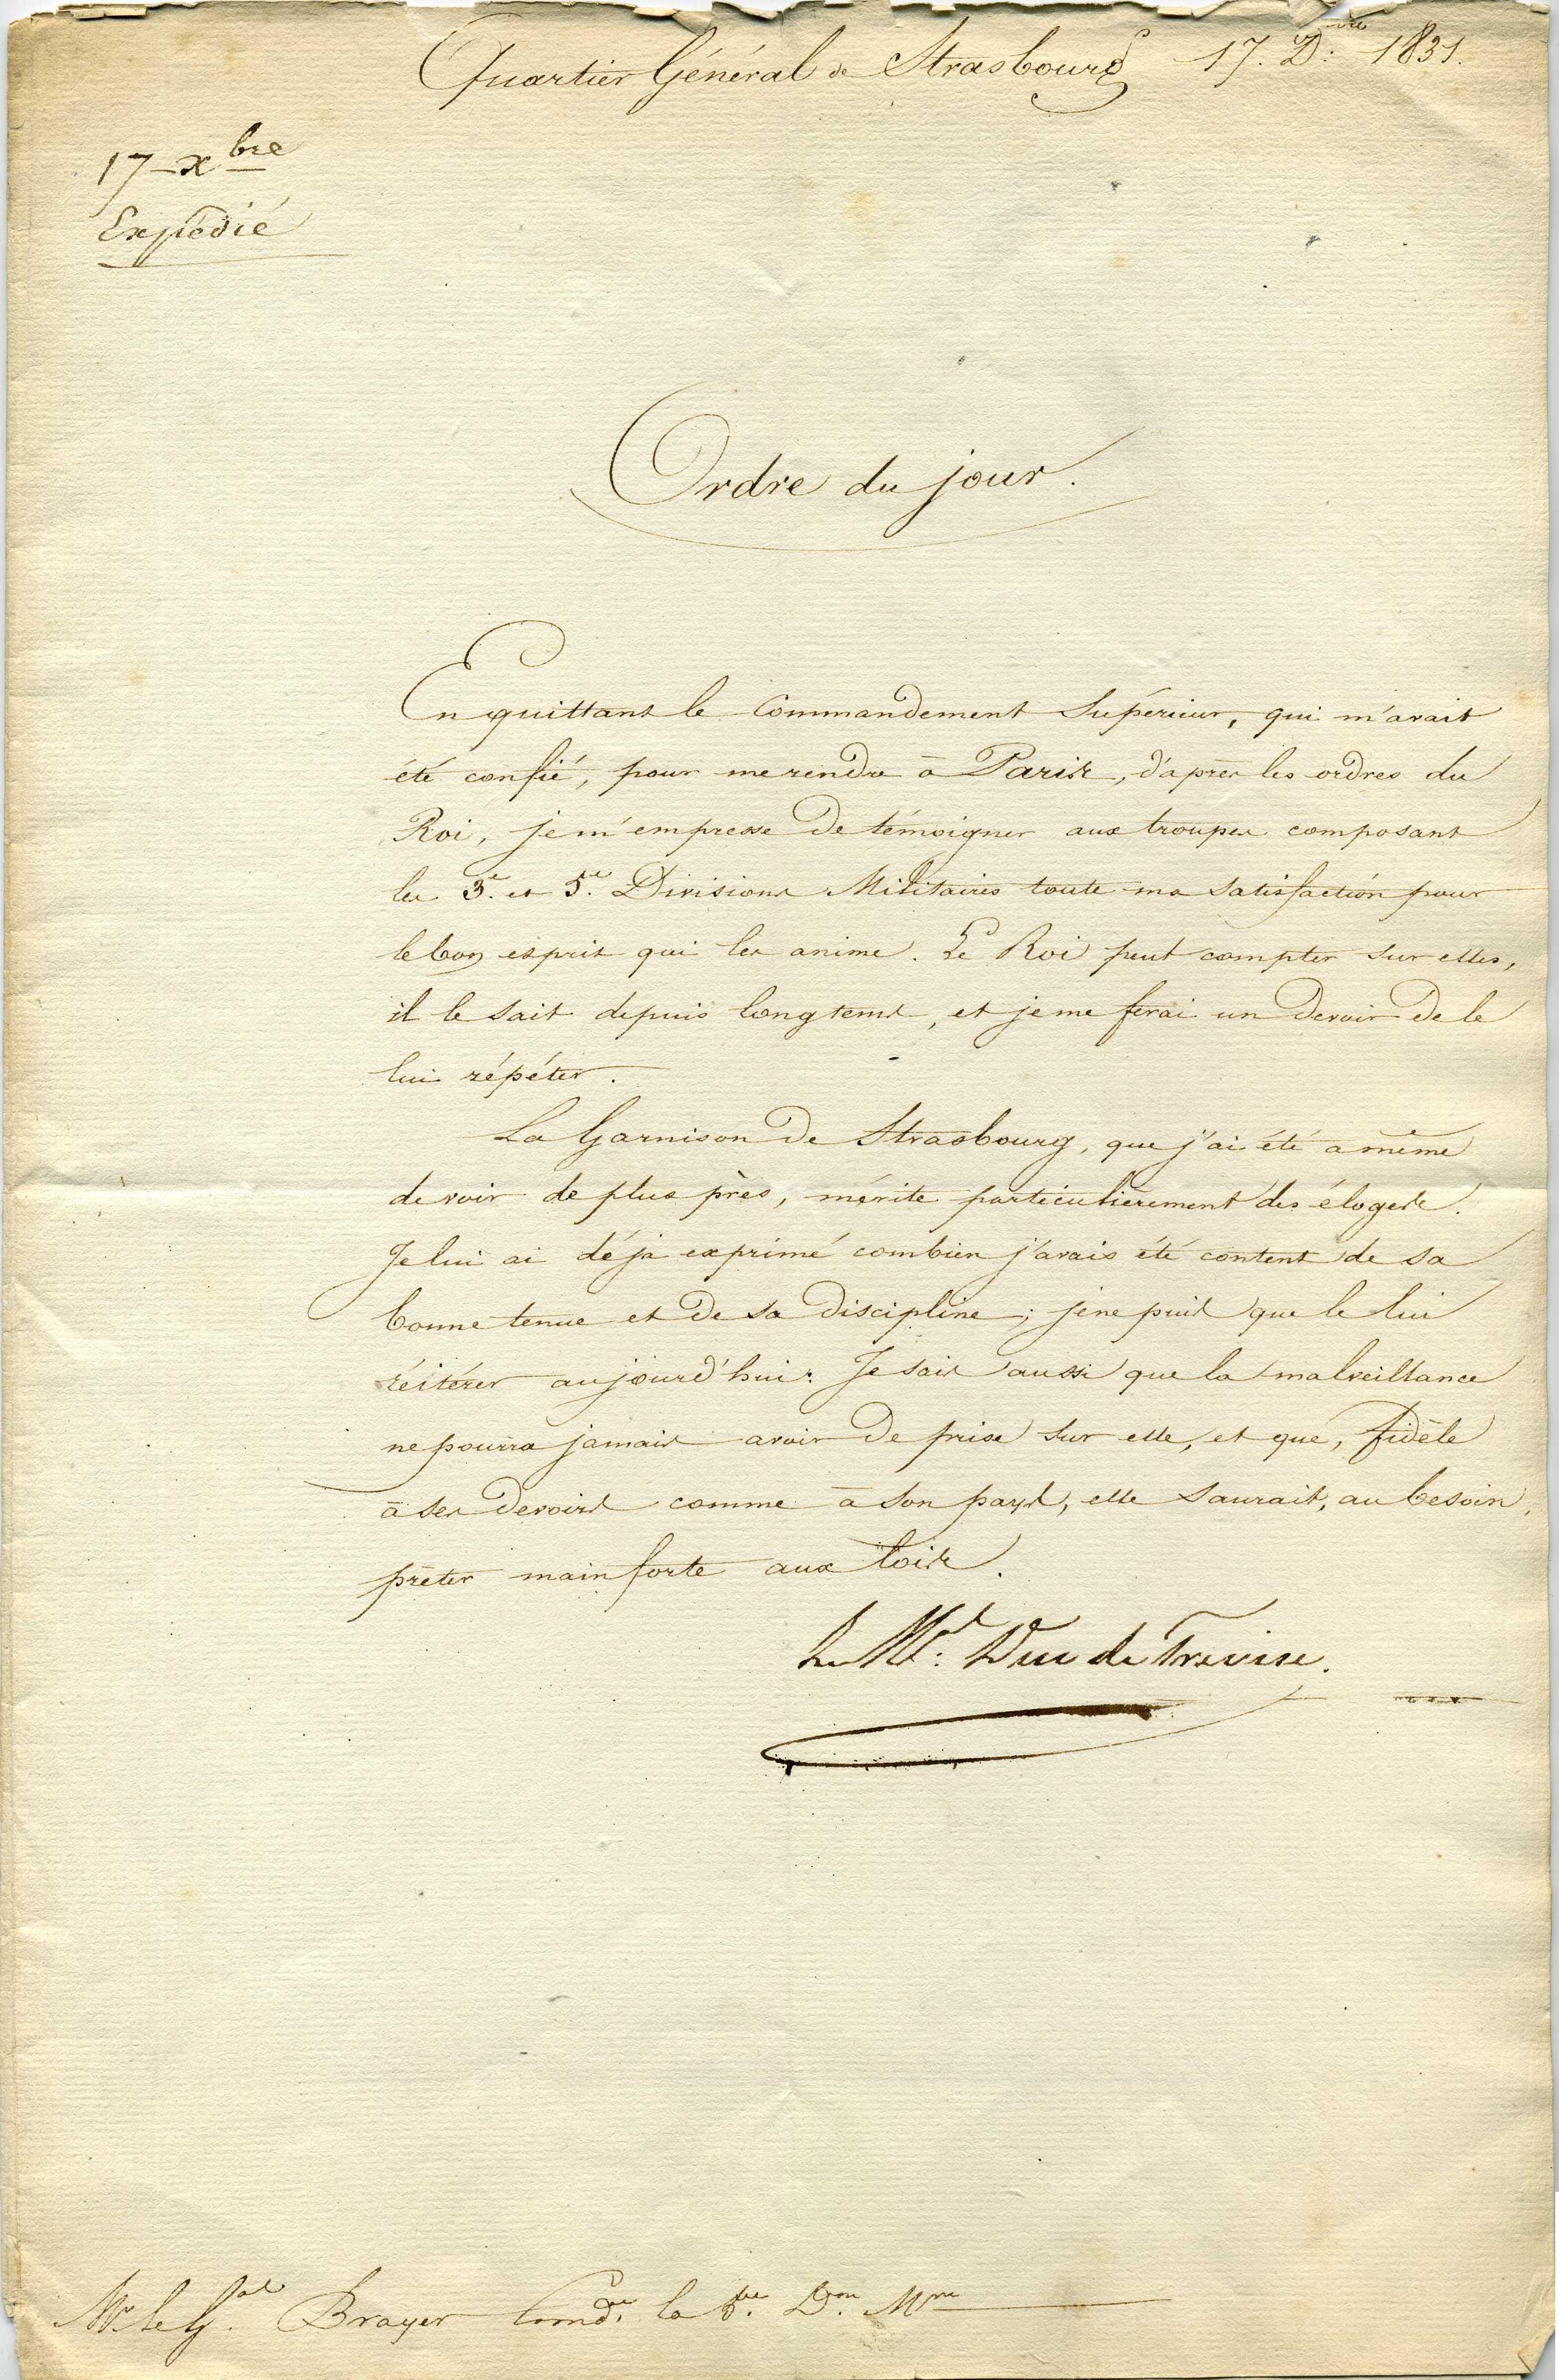 Quartier Général de Strasbourg 17. D:bre 1831.
17 xbre
Expédié
Ordre du jour.
En quittant le Commandement Supérieur, qui m'avait
été confié, pour me rendre à Paris, d'après les ordres du
Roi, je m'empresse de témoigner aux troupes composant
les 3.e et 5.e Divisions Militaires toute ma satisfaction pour
le bon esprit qui les anime. Le Roi peut compter sur elles,
il le sait depuis longtems, et je me ferai un devoir de le
lui répéter.
La Garnison de Strasbourg, que j'ai été à même
de voir de plus près, mérite particulièrement des éloges.
Je lui ai déjà exprimé combien j'avais été content de sa
bonne tenue et de sa discipline; je ne puis que le lui
réitérer aujourd'hui. Je sais aussi que la malveillance
ne pourra jamais avoir de prise sur elle, et que, fidèle
à ses devoirs comme à son pays, elle saurait, au besoin,
prêter main forte aux lois.
Le Mal: Duc de Trévise.
Mr. le Gal. Brayer Comdt. la 5me. Don. Mre